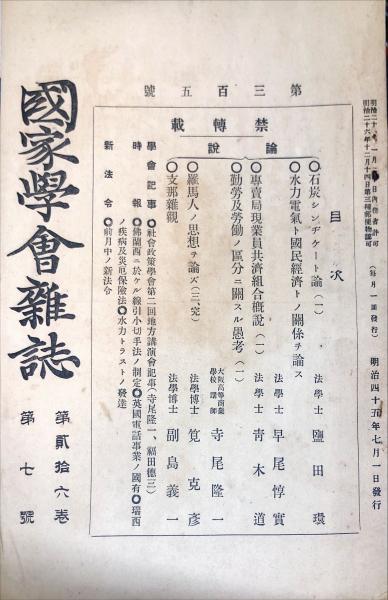 明治四十五年七月一日發行
(每月一回發行)
明治二十六年十二月十四日第三種郵便物認可
第三百五號
禁轉載
目次
論說
○石炭シンヂケート論(一) 法學士 鹽田環
○水力電氣ト國民經濟トノ關係ヲ論ス 法學士 早尾惇實
○專賣局現業員共濟組合概說(一) 法學士 靑木道
○勤勞及勞働ノ區分ニ關スル愚考(一) 大阪高等商業學校講師 寺尾隆一
○羅馬人ノ思想ヲ論ズ(三、完) 法學博士 筧克彥
○支那雜觀 法學博士 副島義一
學會記事 ●社會政策學會第二回地方講演會記事(寺尾隆一、福田德三)
時報 ●佛蘭西ニ於ケル線引小切手法ノ制定●英國電話事業ノ國有●瑞西
ノ疾病及災厄保險法●水力トラストノ發達
新法令 ●前月中ノ新法令
國家學會雜誌
第貳拾六卷
第七號